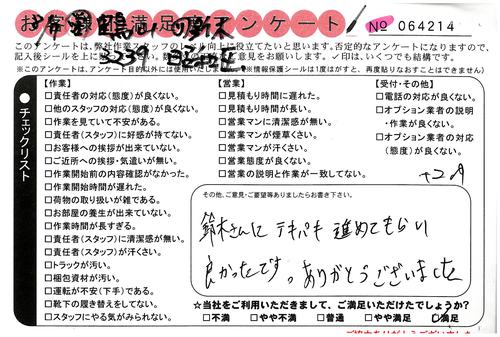 お客様満足度アンケート
No 064214
このアンケートは、弊社作業スタッフのレベル向上に役立てたいと思います。否定的なアンケートになりますので、
※情報保護シールは1度はがすと、再度貼りなおすことはできません)
チェックリスト
【作業】
□責任者の対応(態度)が良くない。
□他のスタッフの対応(態度)が良くない。
□作業を見ていて不安がある。
□責任者(スタッフ)に好感が持てない。
□お客様への挨拶が出来ていない。
□ご近所への挨拶・気遣いが無い。
□作業開始前の内容確認がなかった。
□作業開始時間が遅れた。
□荷物の取り扱いが雑である。
□お部屋の養生が出来ていない。
□作業時間が長すぎる。
□責任者(スタッフ)に清潔感が無い。
□責任者(スタッフ)が汗くさい。
□トラックが汚い。
□梱包資材が汚い。
□運転が不安(下手)である。
□靴下の履き替えをしてない。
□スタッフにやる気がみられない。
【営業】
□見積もり時間に遅れた。
□見積もり時間が長い。
□営業マンに清潔感が無い。
□営業マンが煙草くさい。
□営業マンが汗くさい。
□営業態度が良くない。
□営業の説明と作業が一致してない。
【受付・その他】
□電話の対応が良くない。
□オプション業者の説明
・作業が良くない。
□オプション業者の対応
(態度)が良くない。
その他、ご意見・ご要望等ありましたらお書き下さい。
鈴木さんに テキパキ 進めてもらい
良かったです。ありがとうございました
☆当社をご利用いただきまして、ご満足いただけたでしょうか?
□不満 □やや不満 □普通 □やや満足 ☑満足
ご協力ありがとうございました